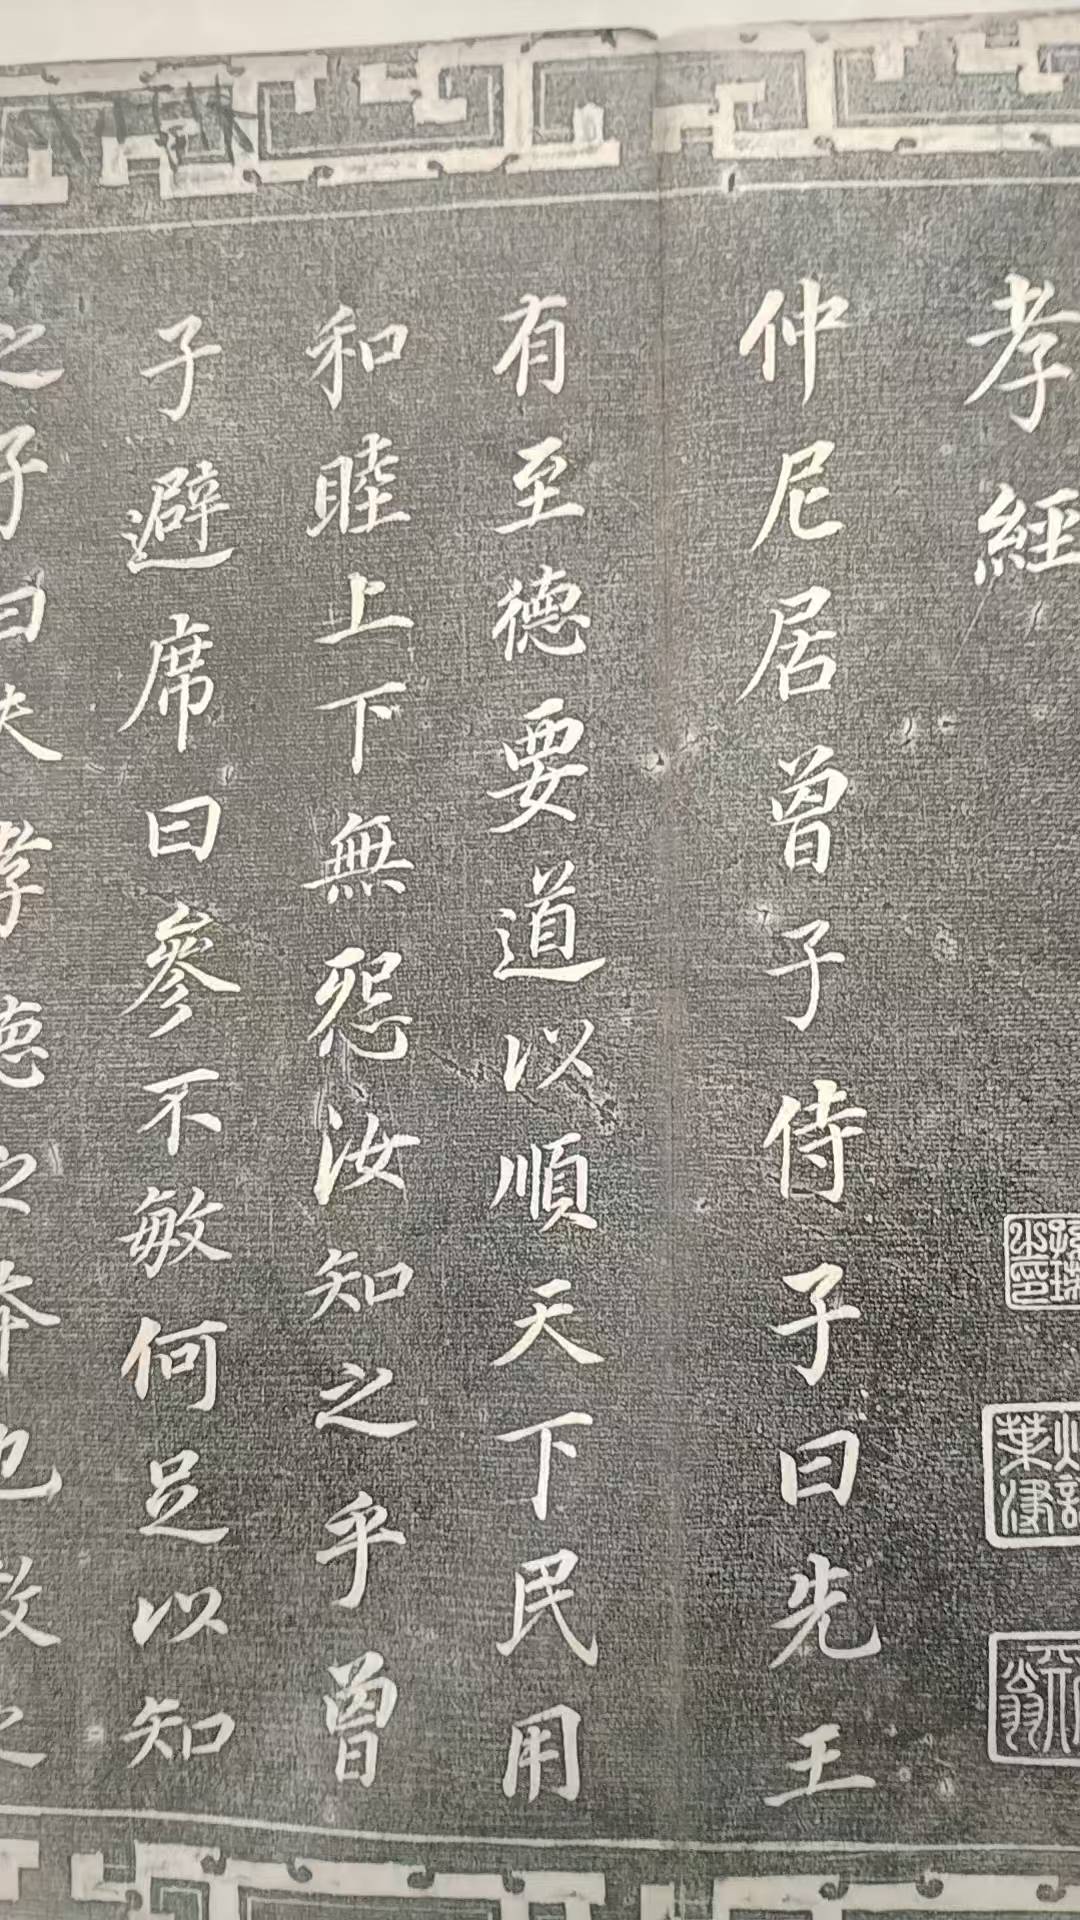 孝經
仲尼居曾子侍子曰先王
有至德要道以順天下民用
和睦上下無怨汝知之乎曾
子避席曰參不敏何足以知
之子曰夫孝德之本也教之